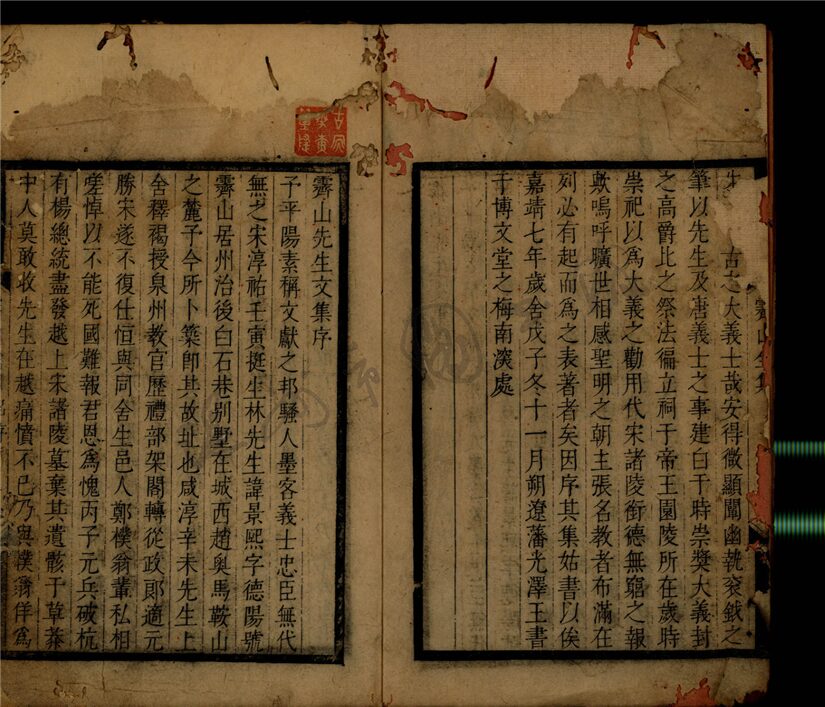 古之大義士哉安得微顯闡幽執衮鉞之
筆以先生及唐義士之事建白于時崇獎大義封
之高爵比之祭法徧立祠于帝王園陵所在歲時
崇祀以爲大義之勸用代宋諸陵銜德無窮之報
歟嗚呼曠世相感聖明之朝主張名教者布滿在
列必有起而爲之表著者矣因序其集姑書以俟
嘉靖七年歲舍戊子冬十一月朔遼藩光澤王書
于博文堂之梅南深處
霽山先生文集序
予平陽素稱文獻之邦騷人墨客義士忠臣無代
無之宋淳祐壬寅挺生林先生諱景熙字德陽號
霽山居州治後白石巷別墅在城西趙奥馬鞍山
之麓予今所卜築卽其故址也咸淳辛未先生上
舍釋褐授泉州教官歷禮部架閣轉從政郎適元
勝宋遂不復仕恒與同舍生邑人鄭樸翁輩私相
嗟悼以不能死國難報君恩爲愧丙子元兵破杭
有楊總統盡發越上宋諸陵墓棄其遺骸于草莽
中人莫敢收先生在越痛憤不已乃與樸翁佯爲